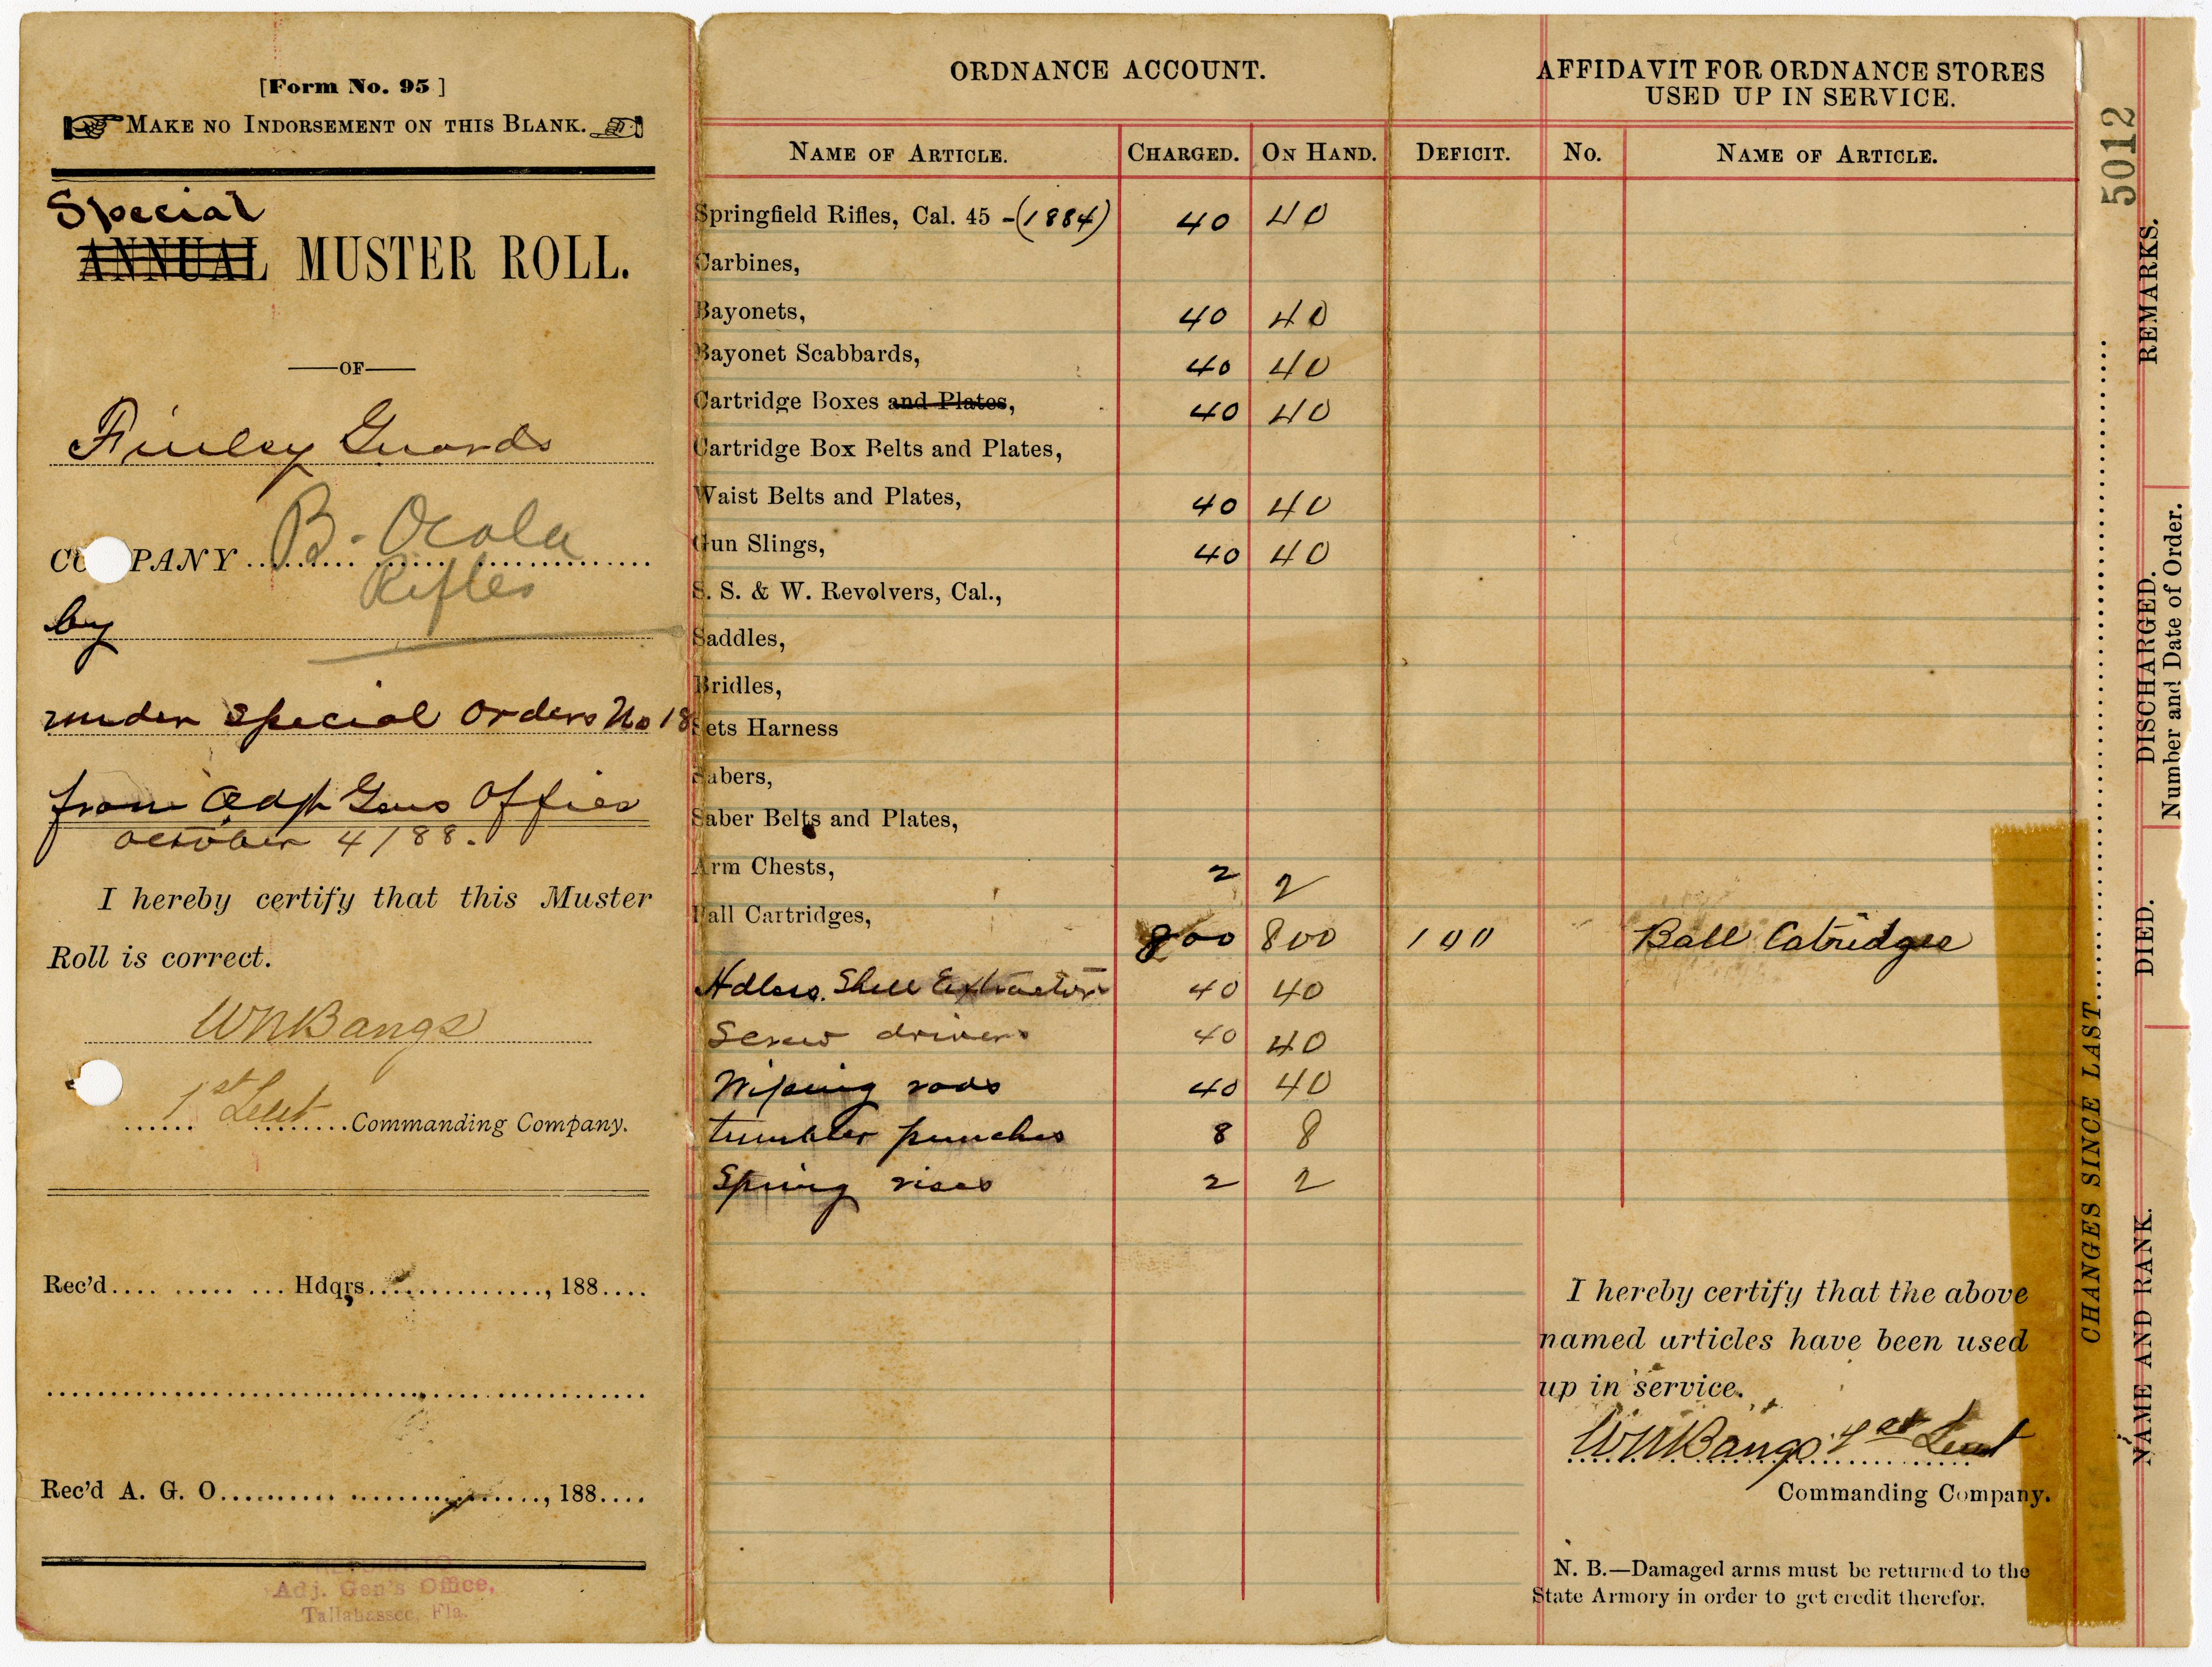 [Form No. 95]
MAKE NO INDORSEMENT ON THIS BLANK.
Special
ANNUAL MUSTER ROLL.
—OF—
Finley Guards
COMPANY B. Ocala
Rifles
by
under Special Orders No 18
from Adjt Gens Office
October 4/88.
I hereby certify that this Muster
Roll is correct.
WNBangs
1st Leut Commanding Company.
Rec'd.... ..... ... Hdqrs................, 188....
Rec'd A. G. O........... .................., 188....
Adj. Gen's Office,
Tallahassee, Fla.
ORDNANCE ACCOUNT.
NAME OF ARTICLE. CHARGED. ON HAND. DEFICIT.
Springfield Rifles, Cal. 45 -(1884) 40 40
Carbines,
Bayonets, 40 40
Bayonet Scabbards, 40 40
Cartridge Boxes and Plates, 40 40
Cartridge Box Belts and Plates,
Waist Belts and Plates, 40 40
Gun Slings, 40 40
S. S. & W. Revolvers, Cal.,
Saddles,
Bridles,
Sets Harness
Sabers,
Saber Belts and Plates,
Arm Chests, 2 2
Ball Cartridges, 800 800 100
Hdless Shell Extractor 40 40
Screw drivers 40 40
Wiping rods 40 40
tumbler punches 8 8
Spring vises 2 2
AFFIDAVIT FOR ORDNANCE STORES
USED UP IN SERVICE.
NO. NAME OF ARTICLE.
Ball Catridges
I hereby certify that the above
named articles have been used
up in service.
WNBangs 1st Leut
Commanding Company.
N. B.—Damaged arms must be returned to the
State Armory in order to get credit therefor.
5012
CHANGES SINCE LAST
NAME AND RANK.
DIED.
DISCHARGED.
Number and Date of Order.
REMARKS.